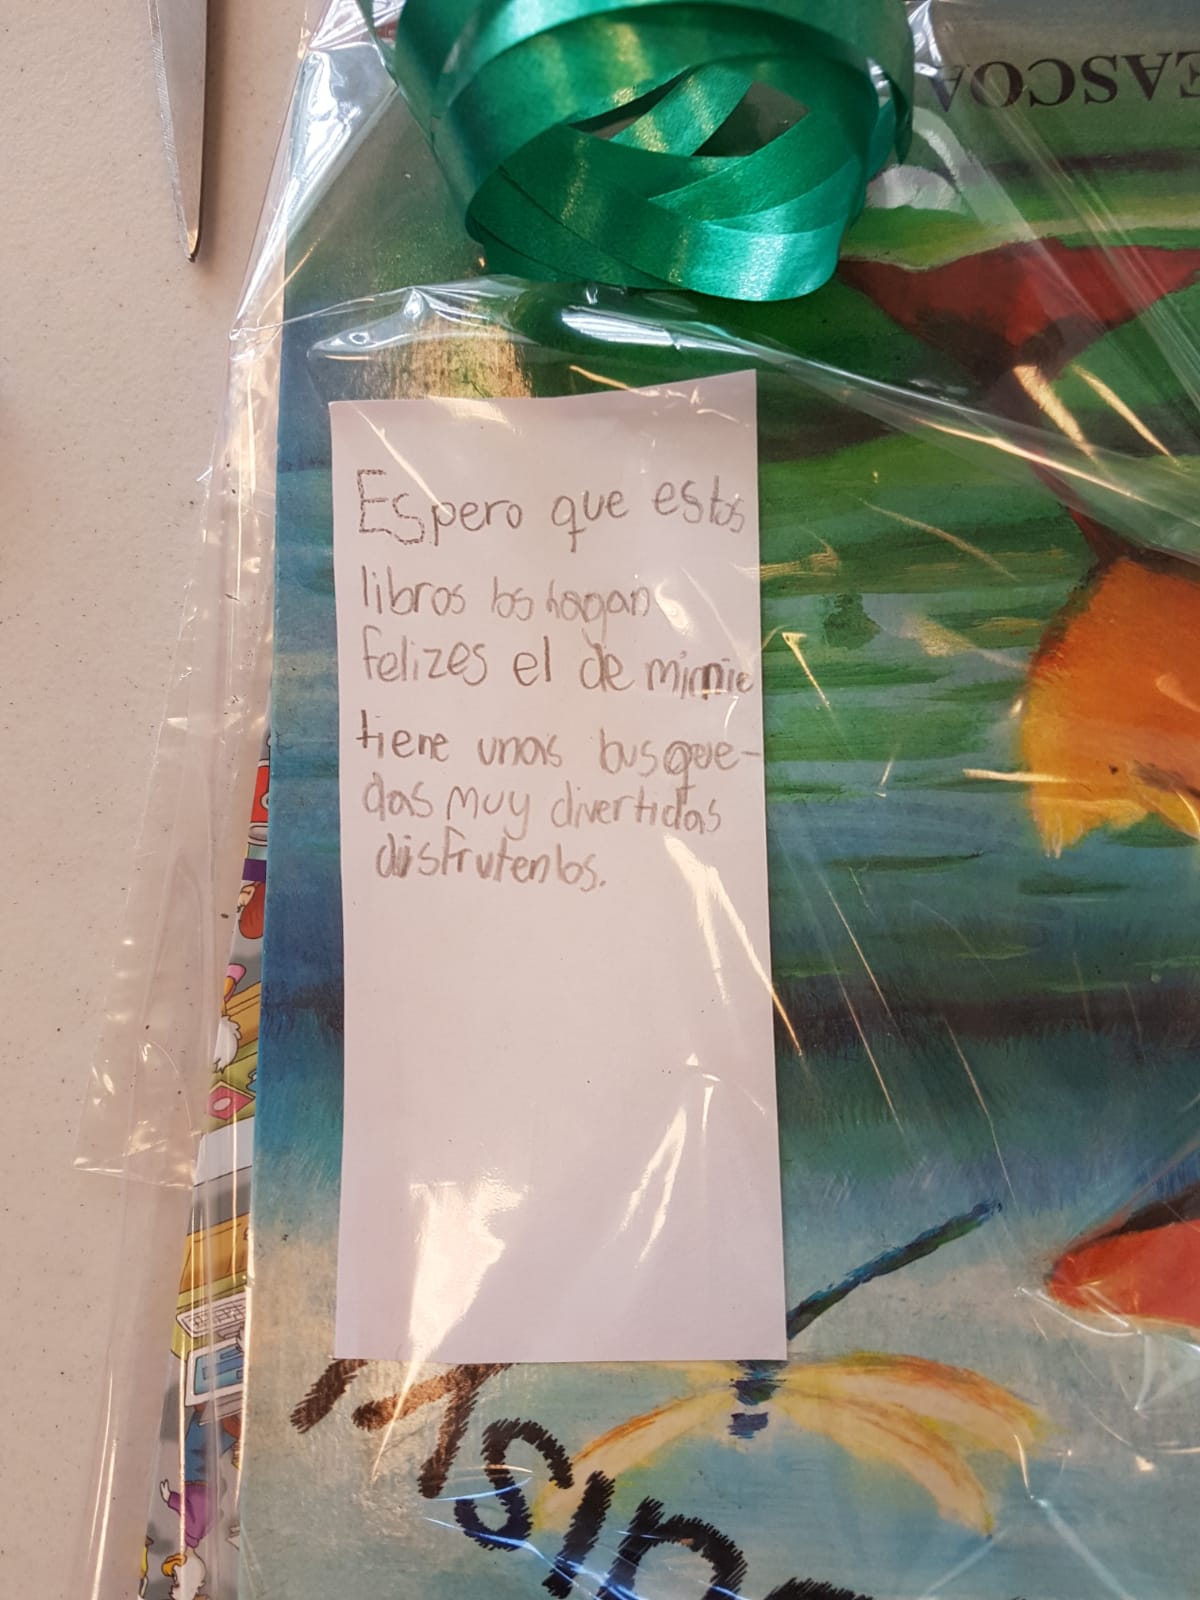 EASCOA
Espero que estos
libros los hagan
felizes el de minnie
tiene unas busque-
das muy divertidas
disfrutenlos.